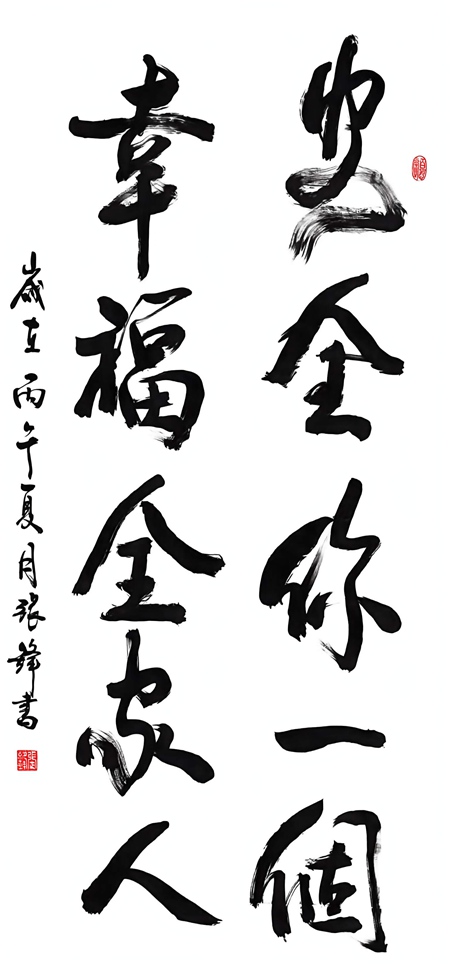 安全你一個
幸福全家人
歲在丙午夏月張鋒書